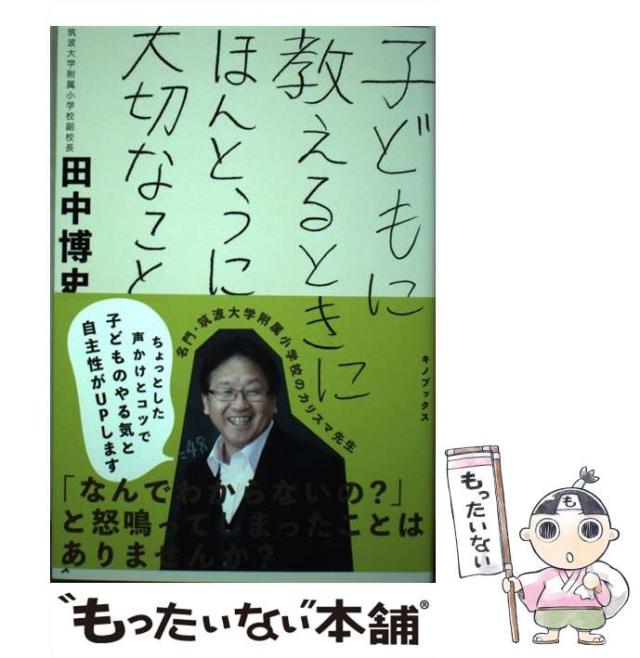 子どもに
教えるときに
ほんとうに
大切なこと
筑波大学附属小学校副校長
田中博史
キノブックス
名門・筑波大学附属小学校のカリスマ先生
ちょっとした
声かけとコツで
子どものやる気と
自主性がUPします
=48
「なんでわからないの？」
と怒鳴ってしまったことは
ありませんか？
ス
もったいない
も
"もったいない"本舗®